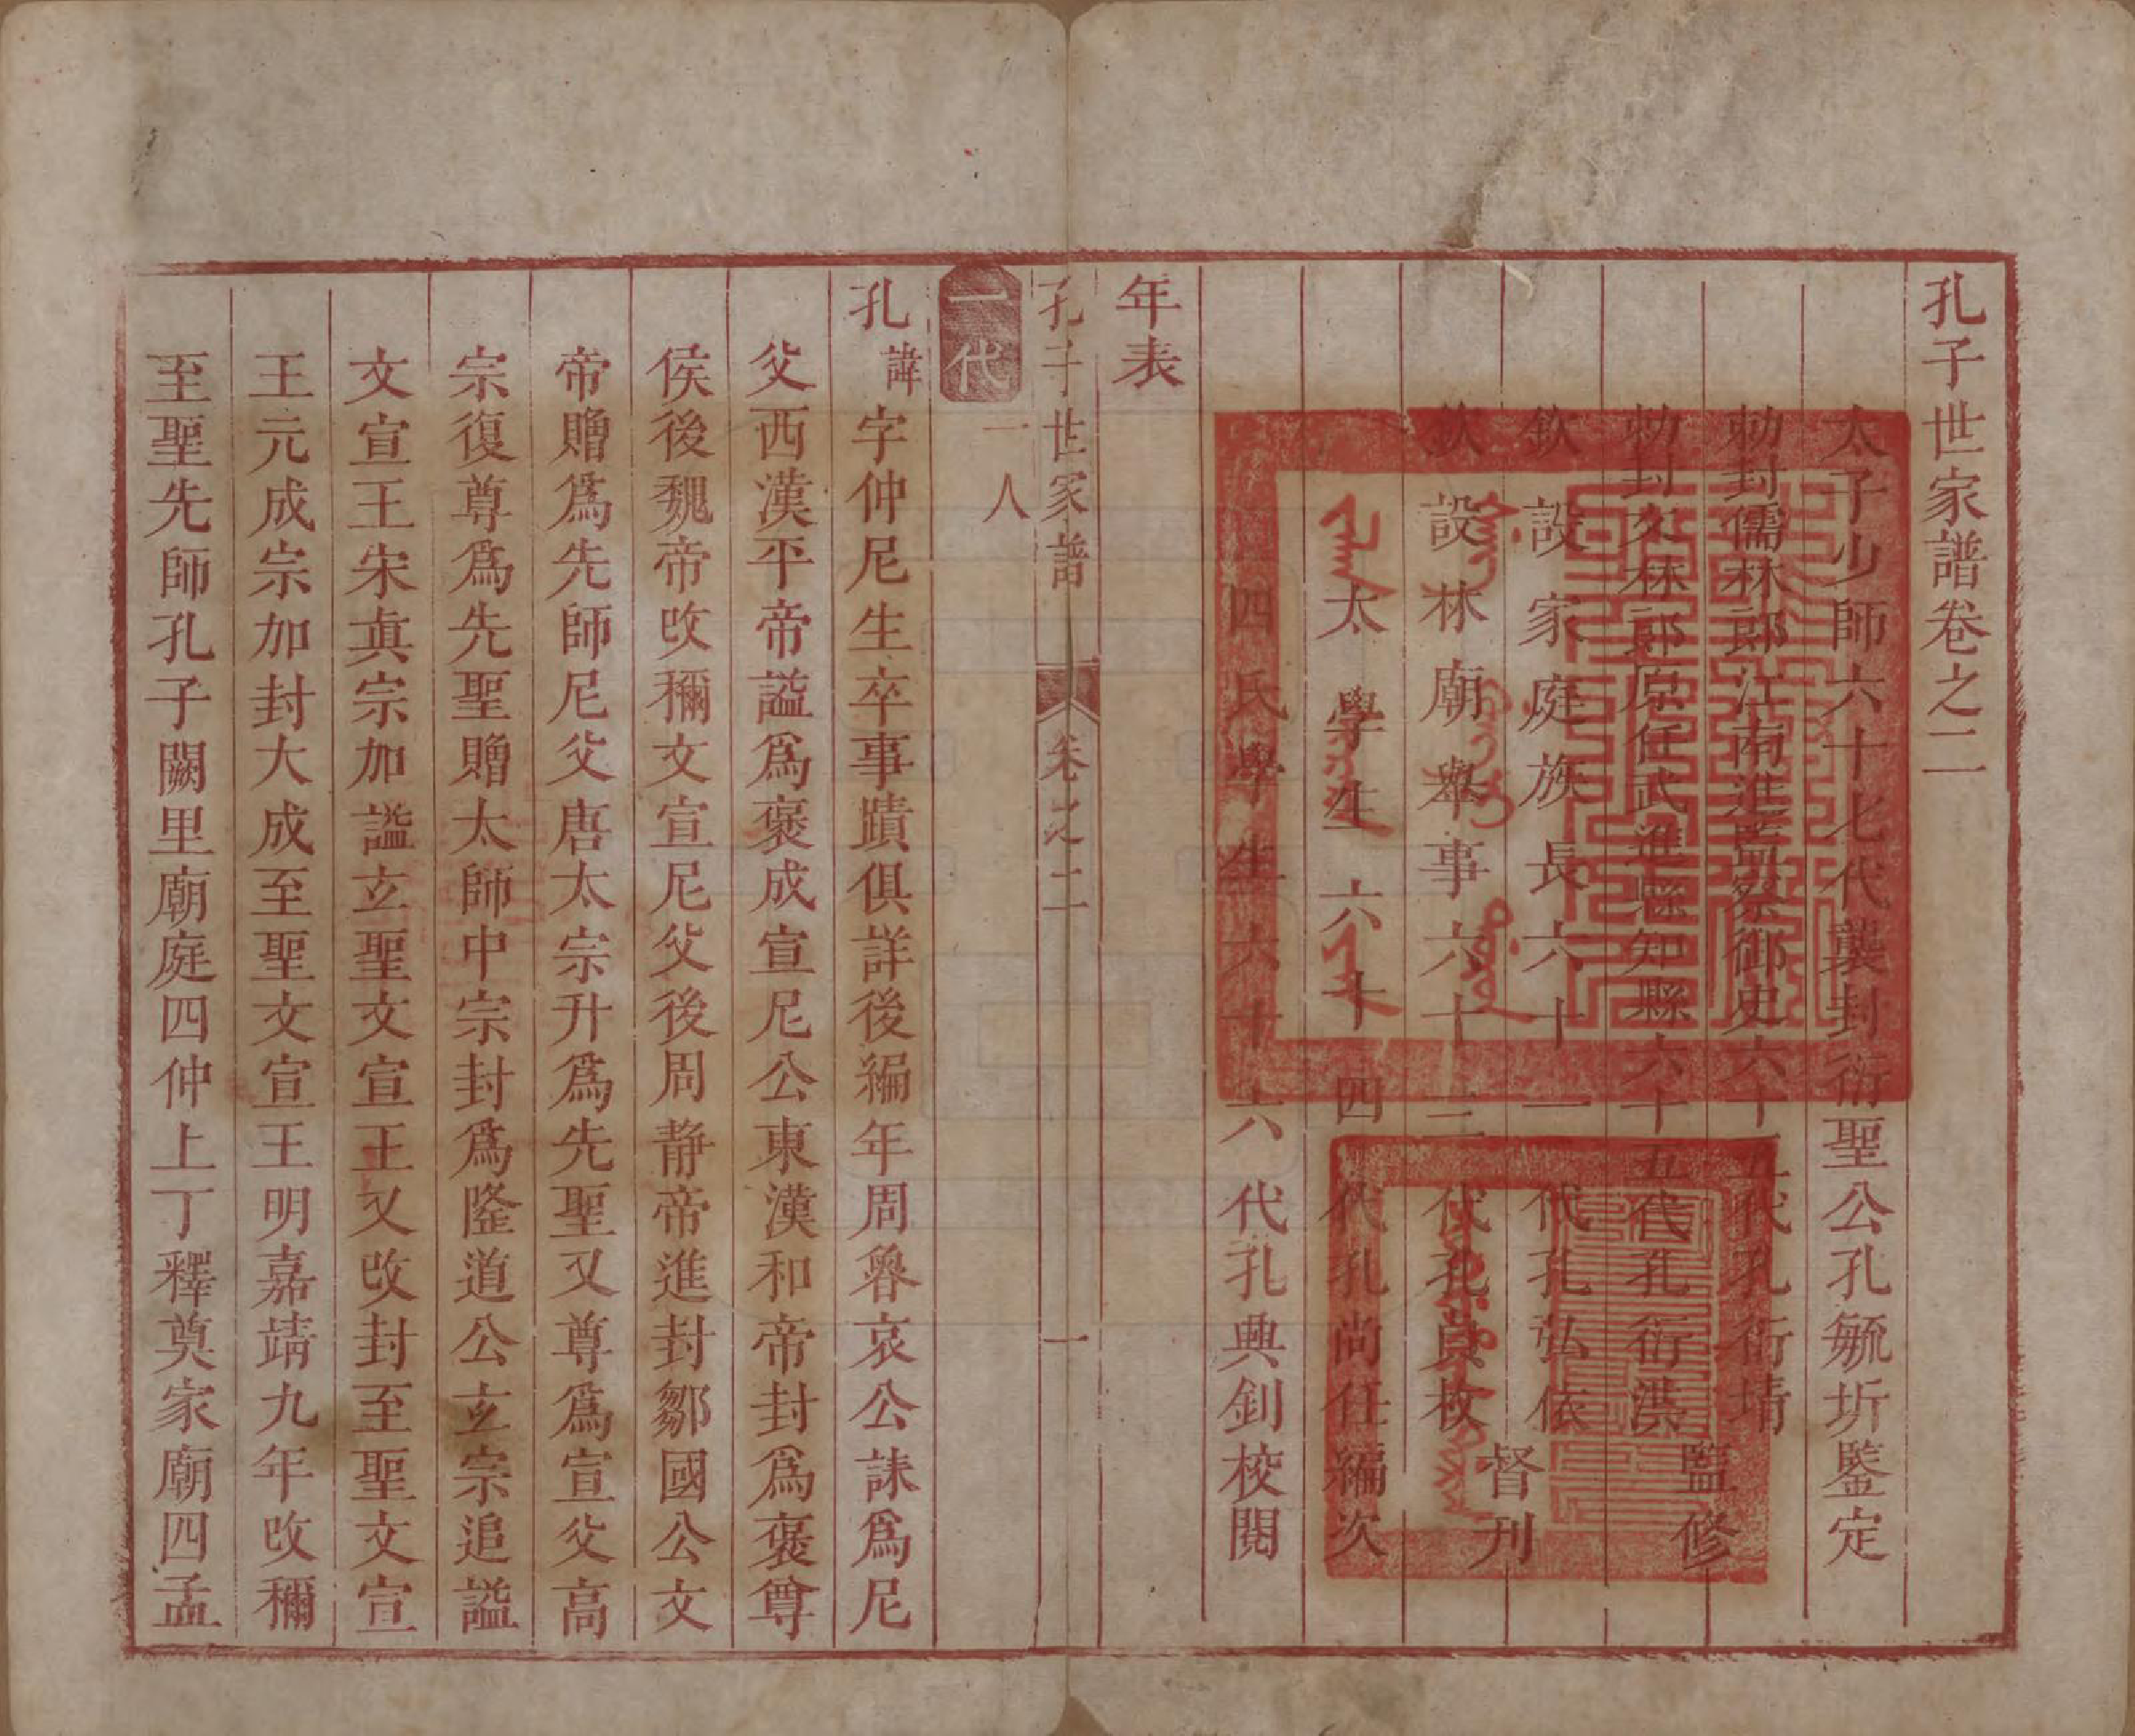 孔子世家譜卷之二
太子少師六十七代襲封衍聖公孔毓圻鑒定
勅封儒林郎江南進監察御史六十五代孔衍
勅封文林郎原任武進縣知縣六十五代孔衍淇
監修
欽設家庭族長六十一代孔弘依
欽設林廟舉事六十三代孔貞枚
督刊
太學生六十四代孔尚任編次
四氏學生六十六代孔興釗校閱
年表
孔子世家譜 卷之二 一
一代 一人
孔諱字仲尼生卒事蹟俱詳後編年周魯哀公誄為尼
父西漢平帝謚為褒成宣尼公東漢和帝封為褒尊
侯後魏帝改稱文宣尼父後周靜帝進封鄒國公文
帝贈為先師尼父唐太宗升為先聖又尊為宣父高
宗復尊為先聖贈太師中宗封為隆道公玄宗追謚
文宣王宋真宗加謚玄聖文宣王又改封至聖文宣
王元成宗加封大成至聖文宣王明嘉靖九年改稱
至聖先師孔子闕里廟庭四仲上丁釋奠家廟四孟